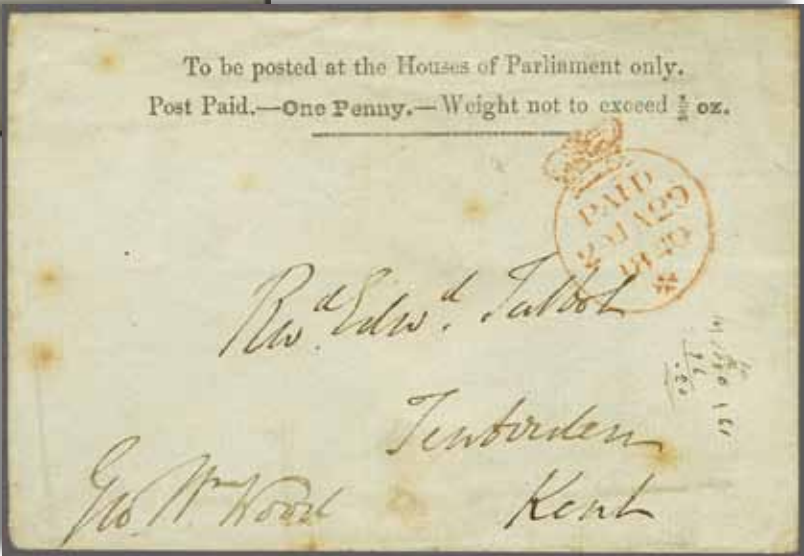 To be posted at the Houses of Parliament only.
Post Paid.—One Penny.—Weight not to exceed ½ oz.
PAID
29 1840
Revd. Edwd. Talbot
Tenterden
Kent
Geo. Wm Wood